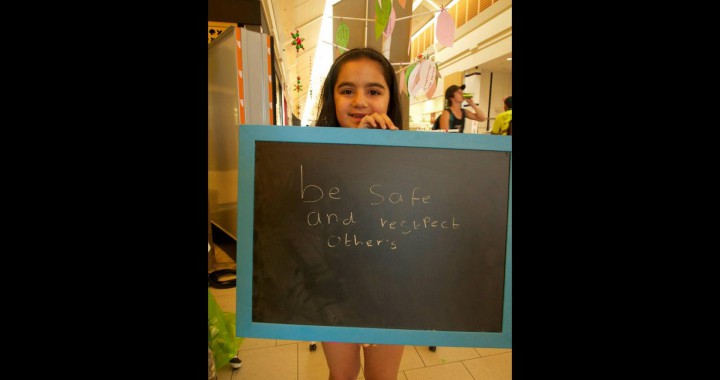 be safe
and regtpect
other's